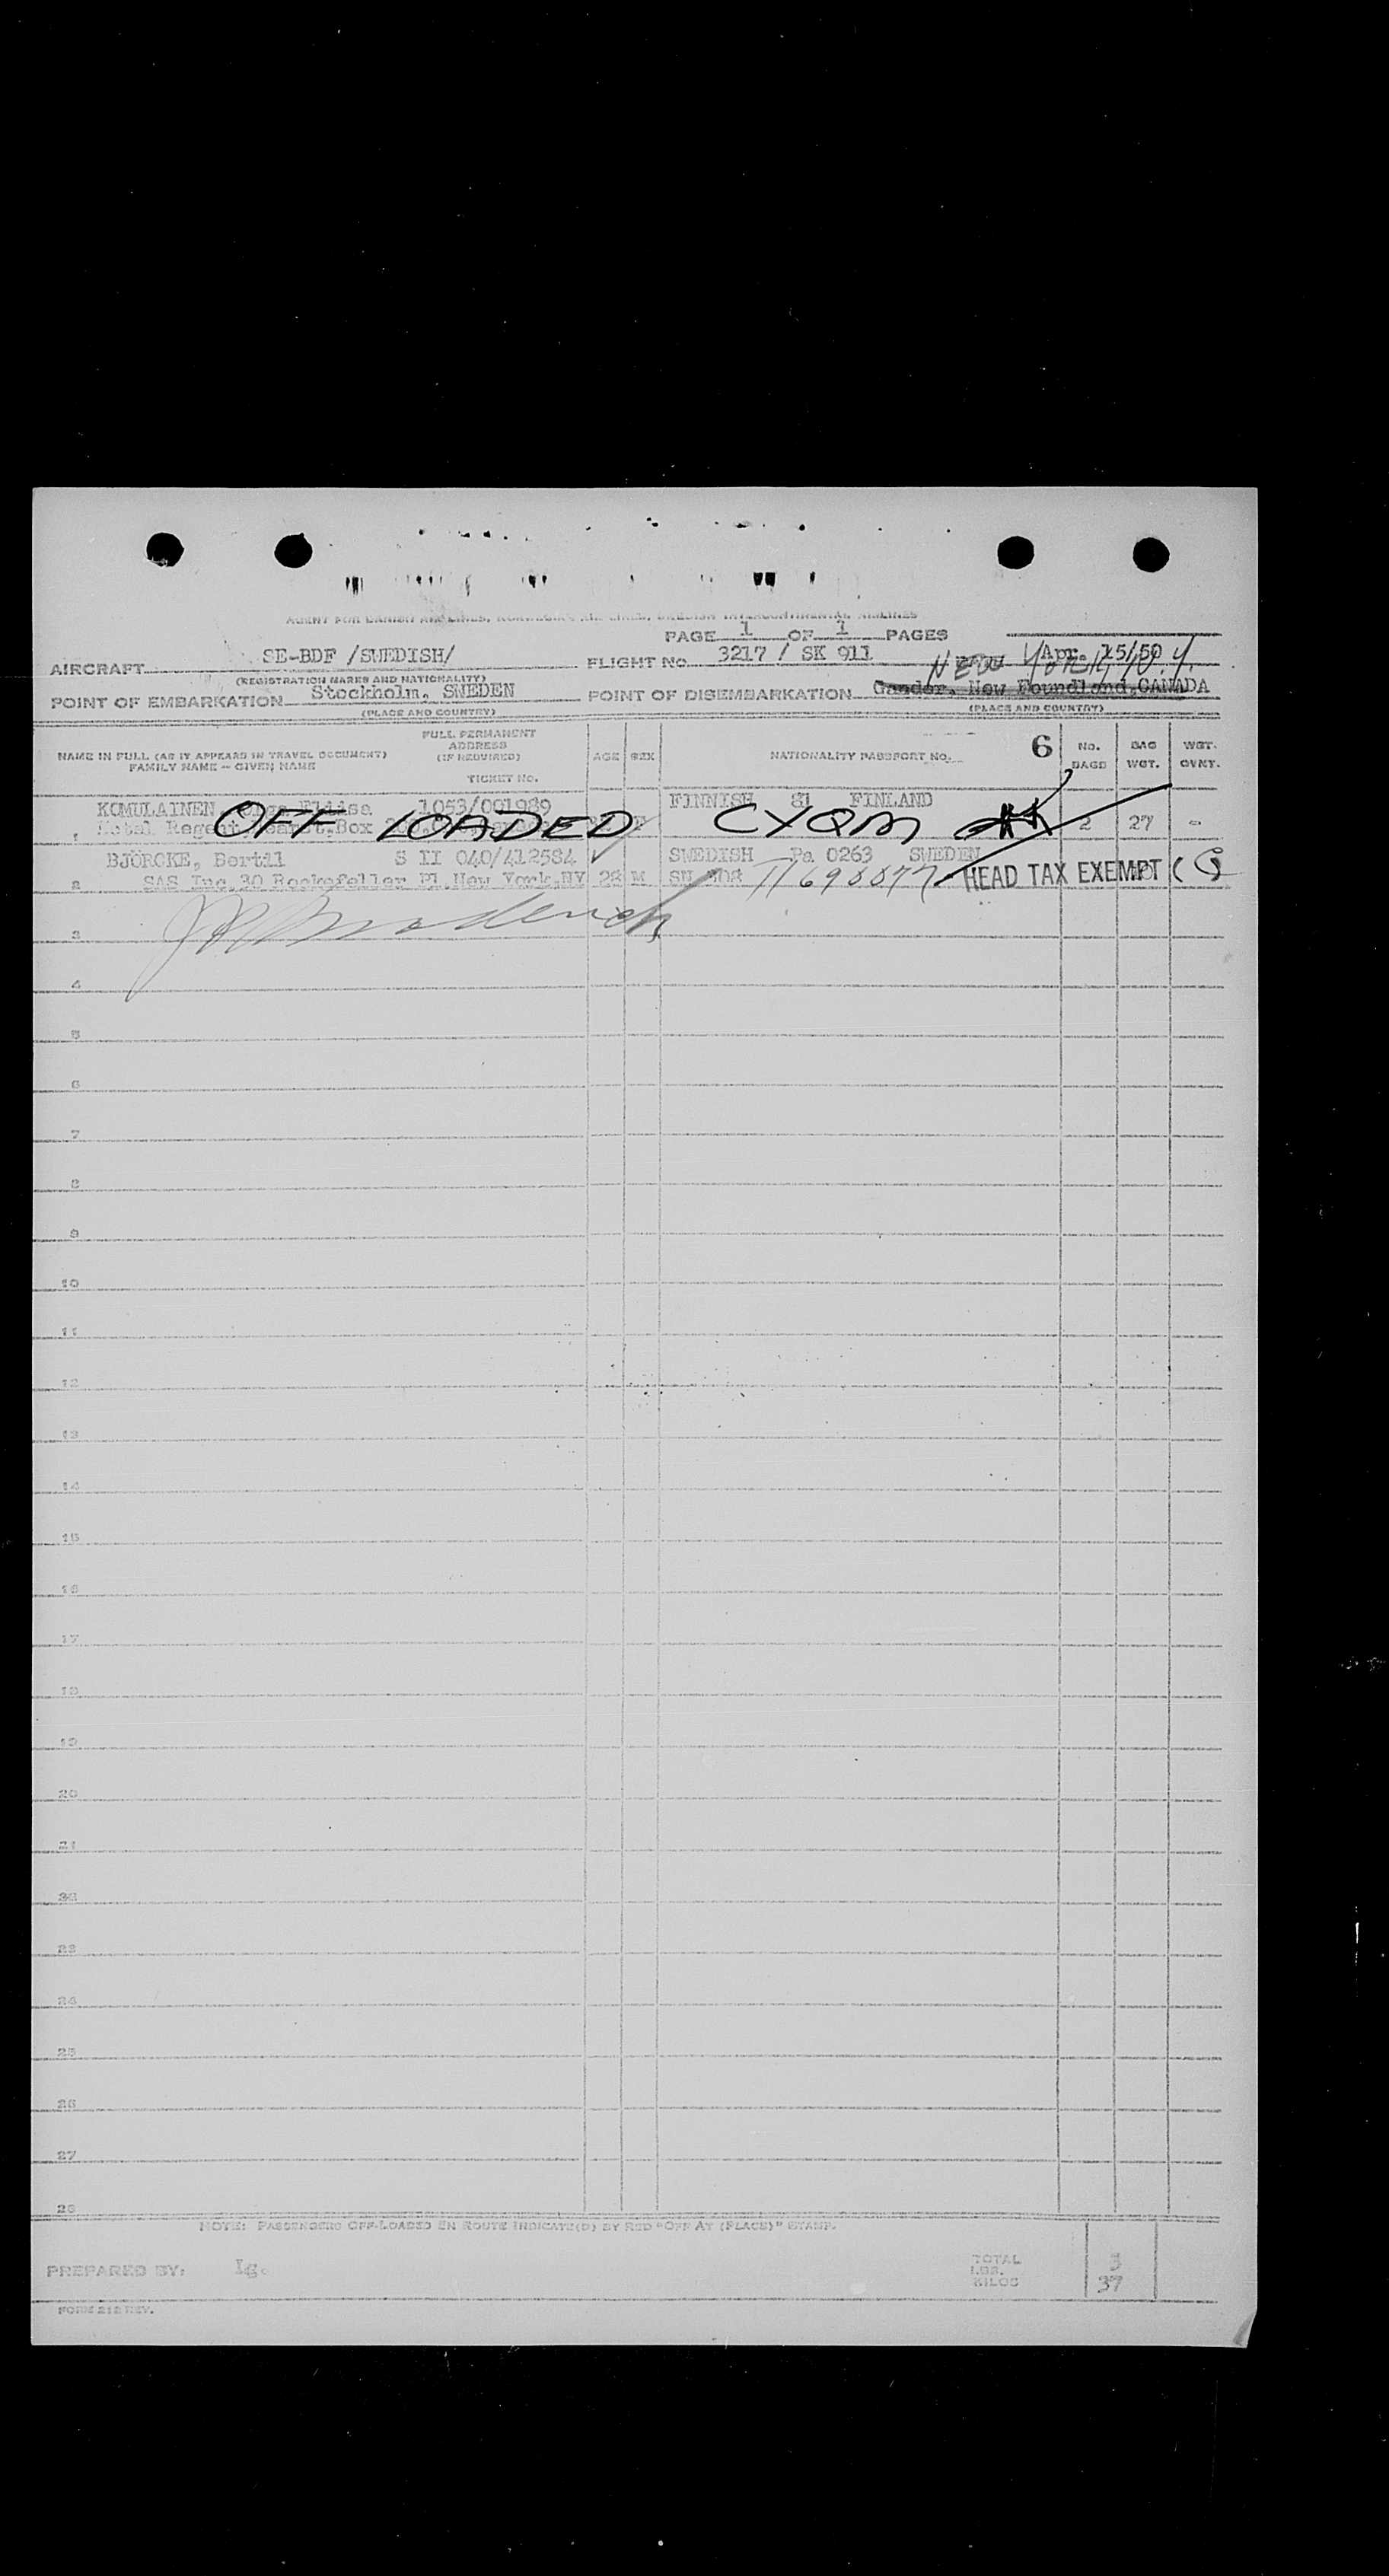 AGENT FOR DANISH AIR LINES, NORWEGIAN AIR LINES, SWEDISH INTERCONTINENTAL AIRLINES
PAGE 1 OF 1 PAGES
AIRCRAFT SE-BDF /SWEDISH/ FLIGHT NO. 3217 / SK 911 Apr. 15/50
(REGISTRATION MARKS AND NATIONALITY) New York N.Y.
POINT OF EMBARKATION Stockholm, SWEDEN POINT OF DISEMBARKATION Gander, New Foundland, CANADA
(PLACE AND COUNTRY) (PLACE AND COUNTRY)
NAME IN FULL (AS IT APPEARS IN TRAVEL DOCUMENT)
FAMILY NAME – GIVEN NAME
FULL PERMANENT
ADDRESS
(IF REQUIRED)
TICKET NO.
AGE SEX NATIONALITY PASSPORT NO. 6
No.
BAGS
BAG
WGT.
WGT.
OVWT.
KOMULAINEN 1053/001989 FINNISH 81 FINLAND
1 Hotel Regent, Box 2 27 -
OFF LOADED CYQM
BJÖRCKE, Bertil S II 040/412584 SWEDISH Pa 0263 SWEDEN
2 SAS Inc 30 Rockefeller Pl. New York, NY 28 M HEAD TAX EXEMPT
3
4
5
6
7
8
9
10
11
12
13
14
15
16
17
18
19
20
21
22
23
24
25
26
27
28
NOTE: PASSENGERS OFF-LOADED EN ROUTE INDICATE(D) BY RED "OFF AT (PLACE)" STAMP.
PREPARED BY: Ig.
TOTAL 3
LBS.
KILOS 37
FORM 212 REV.